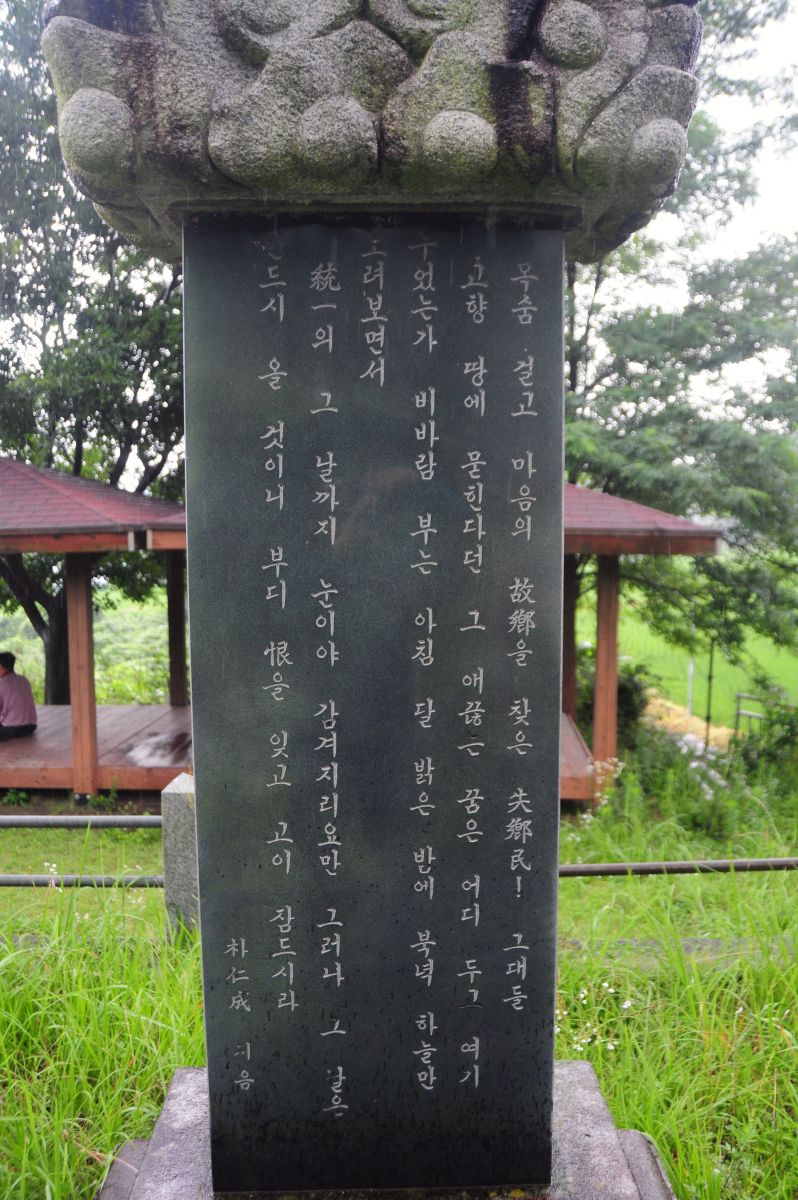 목숨 걸고 마음의 故鄕을 찾은 失鄕民! 그대들
고향 땅에 묻힌다던 그 애끓는 꿈은 어디 두고 여기
누었는가 비바람 부는 아침 달 밝은 밤에 북녘 하늘만
려보면서
統一의 그 날까지 눈이야 감겨지리요만 그러나 그 날은
반드시 올 것이니 부디 恨을 잊고 고이 잠드시라
朴仁成 지음